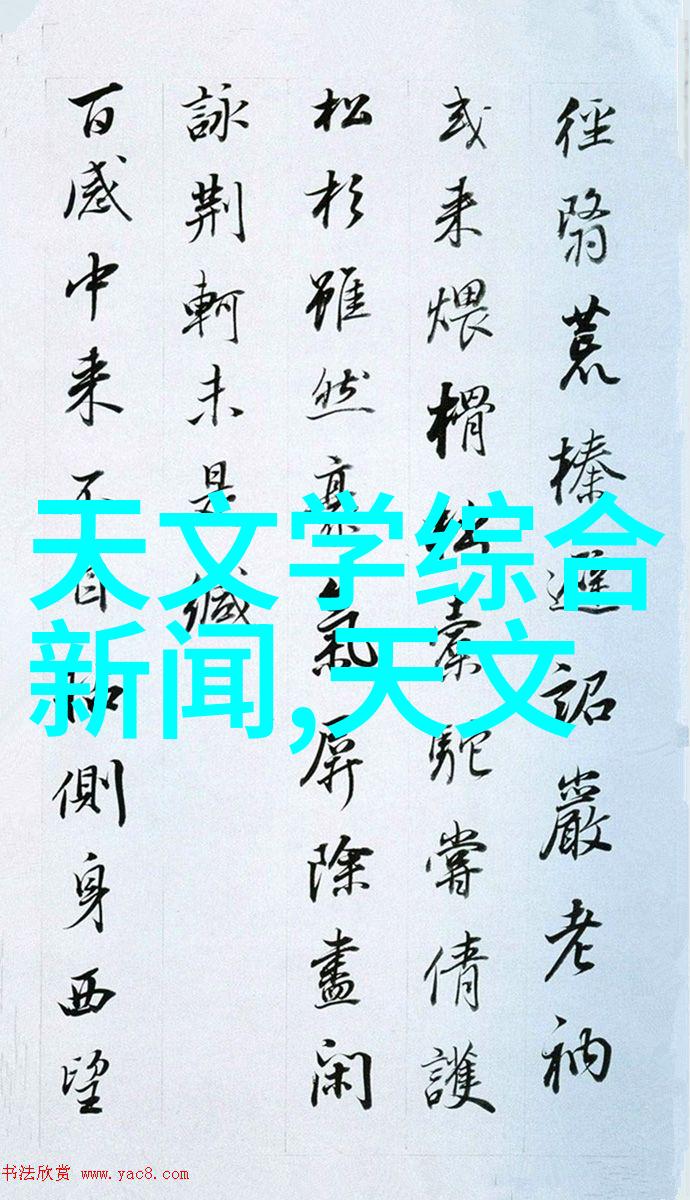 徑翳荒榛邏詔嚴老衲
或来煨榾柮橐駝嘗倩護
松杉雖然豪氣屏除盡閑
詠荆軻未是緘
百感中来不自側身西望
天文学综合
新闻,天文
书法欣赏 www.yac8.com